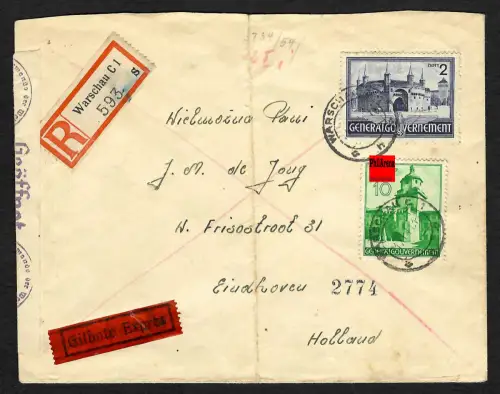 734/64
Warschau C 1
s
593
R
Wielmożna Pani
J. M. de Jong
N. Frisostraat 31
Eindhoven 2774
Holland
Geöffnet
Gilbote Exprès
2
ZŁOTY
GENERALGOUVERNEMENT
WARSCHAU
Philarena
10
GENERALGOUVERNEMENT